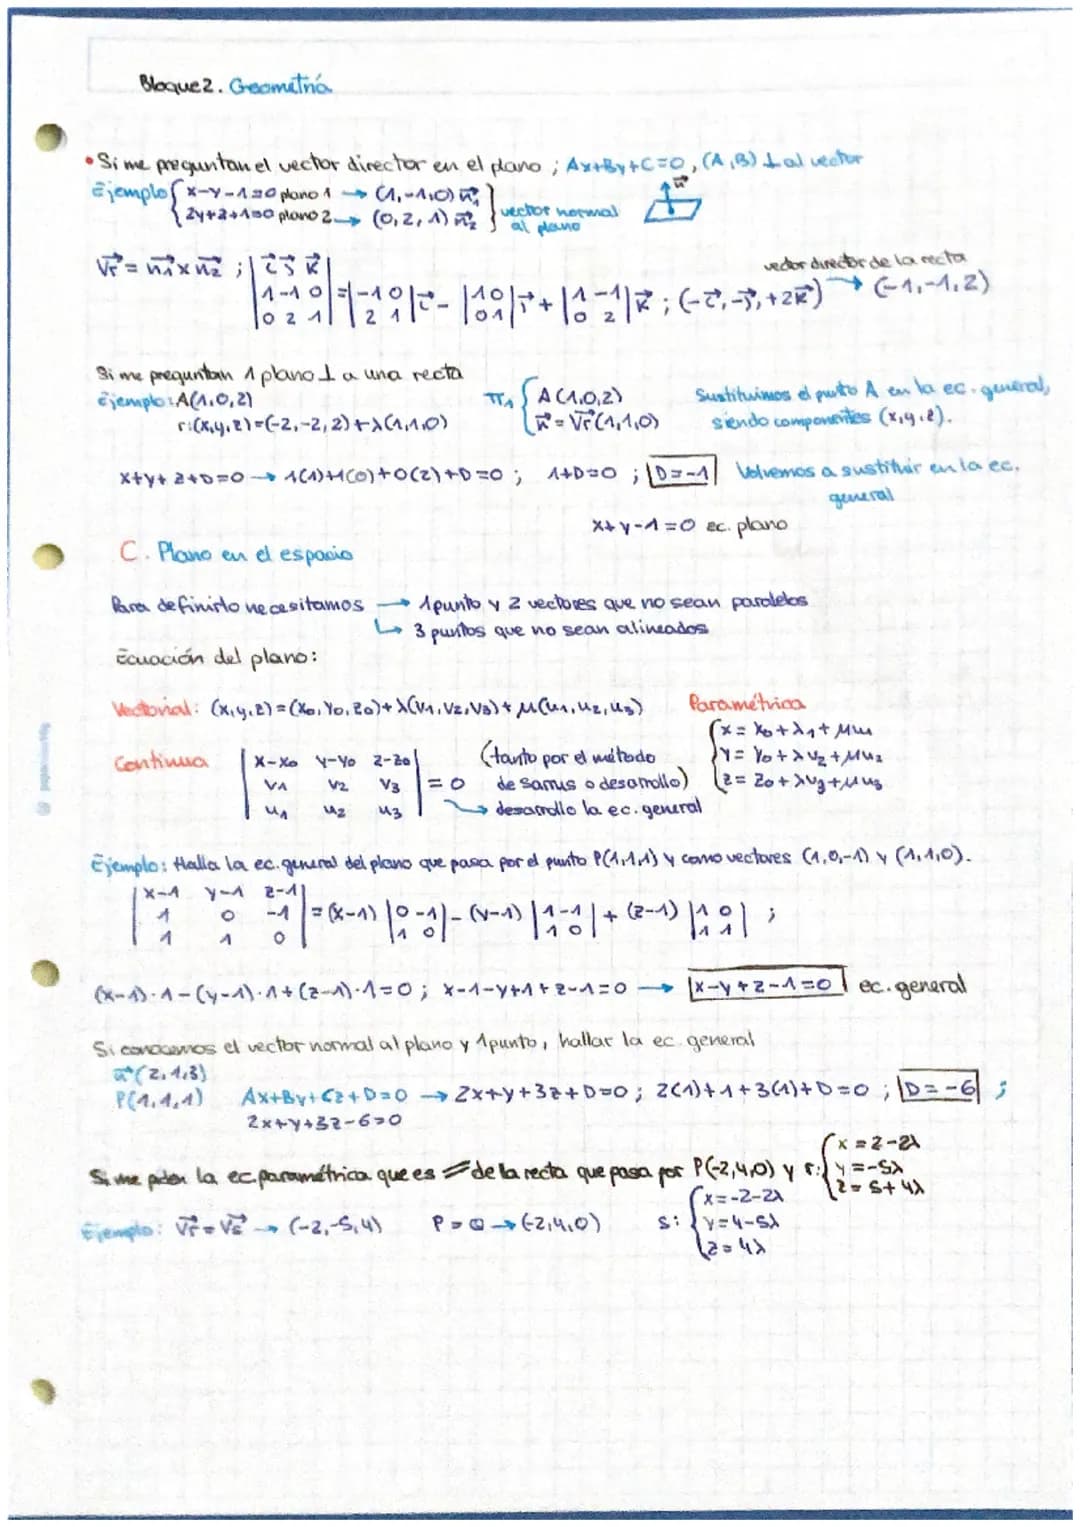 Bloque 2. Geometría
• Si me preguntan el vector director en el plano ; Ax+By+C=0, (A,B) ⊥ al vector
Ejemplo { x-y-1=0 plano 1 → (1,-1,0) n₁⃗
2y+z+1=0 plano 2 → (0,2,1) n₂⃗ } vector normal al plano
n⃗
Vr⃗ = n₁⃗ x n₂⃗ ; | i⃗ j⃗ k⃗ |
| 1 -1 0 | = | -1 0 | i⃗ - | 1 0 | j⃗ + | 1 -1 | k⃗ ; (-i⃗, -j⃗, +2k⃗) → (-1,-1,2) vector director de la recta
| 0 2 1 | | 2 1 | | 0 1 | | 0 2 |
Si me preguntan 1 plano ⊥ a una recta
ejemplo: A(1,0,2)
r:(x,y,z)=(-2,-2,2)+λ(1,1,0)
π₁ { A(1,0,2)
n⃗ = Vr⃗ (1,1,0)
Sustituimos el punto A en la ec. general,
siendo componentes (x,y,z).
x+y+z+D=0 → 1(1)+1(0)+0(2)+D=0 ; 1+D=0 ; D=-1 Volvemos a sustituir en la ec.
general
x+y-1=0 ec. plano
C. Plano en el espacio
Para definirlo necesitamos → 1 punto y 2 vectores que no sean paralelos
↳ 3 puntos que no sean alineados
Ecuación del plano:
Vectorial: (x,y,z)=(x₀,y₀,z₀)+λ(v₁,v₂,v₃)+μ(u₁,u₂,u₃)
Paramétrica
{ x = x₀+λ₁+μu₁
y = y₀+λv₂+μu₂
z = z₀+λv₃+μu₃
Continua | x-x₀ y-y₀ z-z₀ | (tanto por el método
| v₁ v₂ v₃ | = 0 de Sarrus o desarrollo)
| u₁ u₂ u₃ | → desarrollo la ec. general
Ejemplo: Halla la ec. general del plano que pasa por el punto P(1,1,1) y como vectores (1,0,-1) y (1,1,0).
| x-1 y-1 z-1 |
| 1 0 -1 | = (x-1) | 0 -1 | - (y-1) | 1 -1 | + (z-1) | 1 0 | ;
| 1 1 0 | | 1 0 | | 1 0 | | 1 1 |
(x-1)·1-(y-1)·1+(z-1)·1=0 ; x-1-y+1+z-1=0 → x-y+z-1=0 ec. general
Si conocemos el vector normal al plano y 1 punto, hallar la ec. general
n⃗(2,1,3)
P(1,1,1) Ax+By+Cz+D=0 → 2x+y+3z+D=0 ; 2(1)+1+3(1)+D=0 ; D=-6 ;
2x+y+3z-6=0
Si me piden la ec. paramétrica que es // de la recta que pasa por P(-2,4,0) y r: { x = 2-2λ
y = -5λ
z = 5+4λ
Ejemplo: Vr⃗ = Vs⃗ → (-2,-5,4) P = Q → (-2,4,0) s: { x=-2-2λ
y=4-5λ
z=4λ